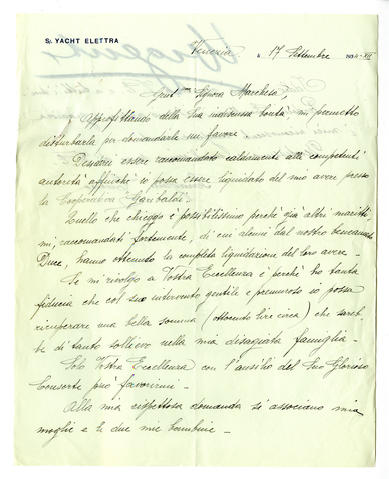 S/ YACHT ELETTRA
Venezia li 17 Settembre 1934-XII
Gent.ma Signora Marchesa,
Approfittando della Sua immensa bontà, mi permetto
disturbarla per domandarle un favore.
Desidererei essere raccomandato caldamente alle competenti
autorità affinché io possa essere liquidato del mio avere presso
la Cooperativa Garibaldi.
Quello che chieggo è possibilissimo perché già altri maritti-
mi, raccomandati fortemente, di cui alcuni dal nostro beneamato
Duce, hanno ottenuto la completa liquidazione del loro avere.
Se mi rivolgo a Vostra Eccellenza è perché ho tanta
fiducia che col suo intervento gentile e premuroso io possa
ricuperare una bella somma (ottocento lire circa) che sareb-
be di tanto sollievo nella mia disagiata famiglia.
Solo Vostra Eccellenza con l'ausilio del Suo Glorioso
Consorte può favorirmi.
Alla mia rispettosa domanda si associano mia
moglie e le due mie bambine.